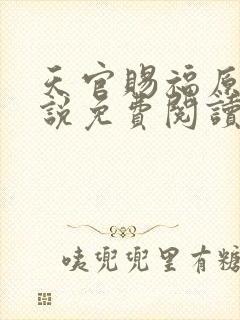 天官賜福原
說免費閱讀
咦兜兜里有糖